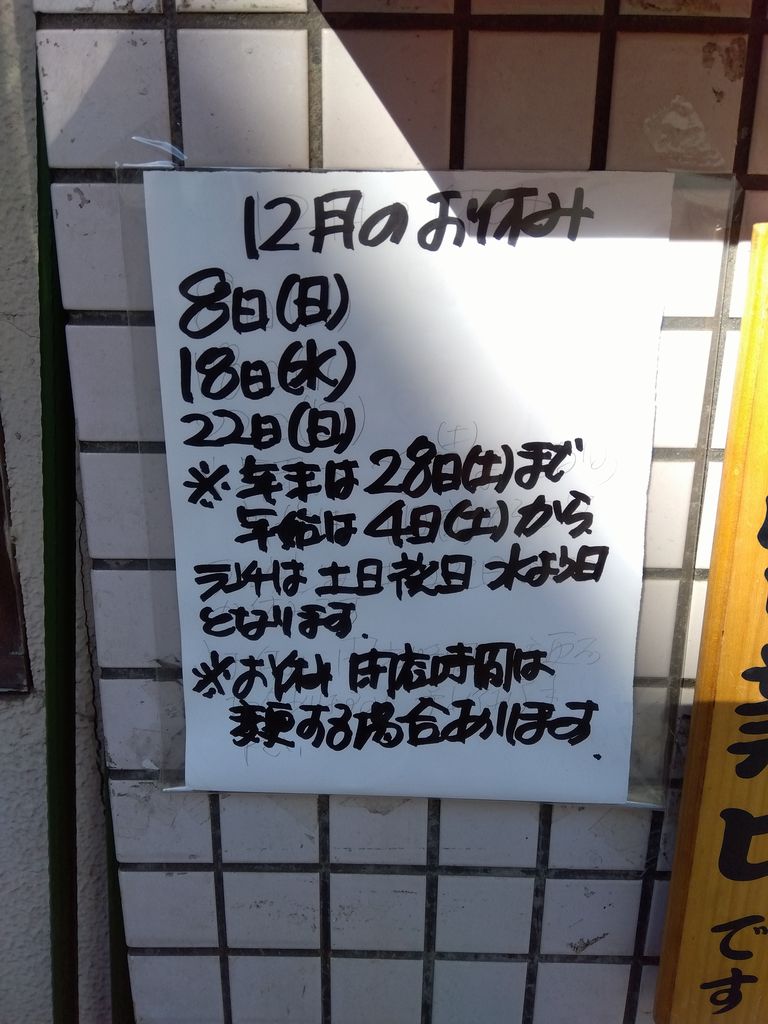 12月のお休み
8日(日)
18日(水)
22日(日)
※年末は28日(土)まで
年始は4日(土)から
ランチは土日祝日水よう日
となります.
※お休み 閉店時間は
変更する場合あります.
です